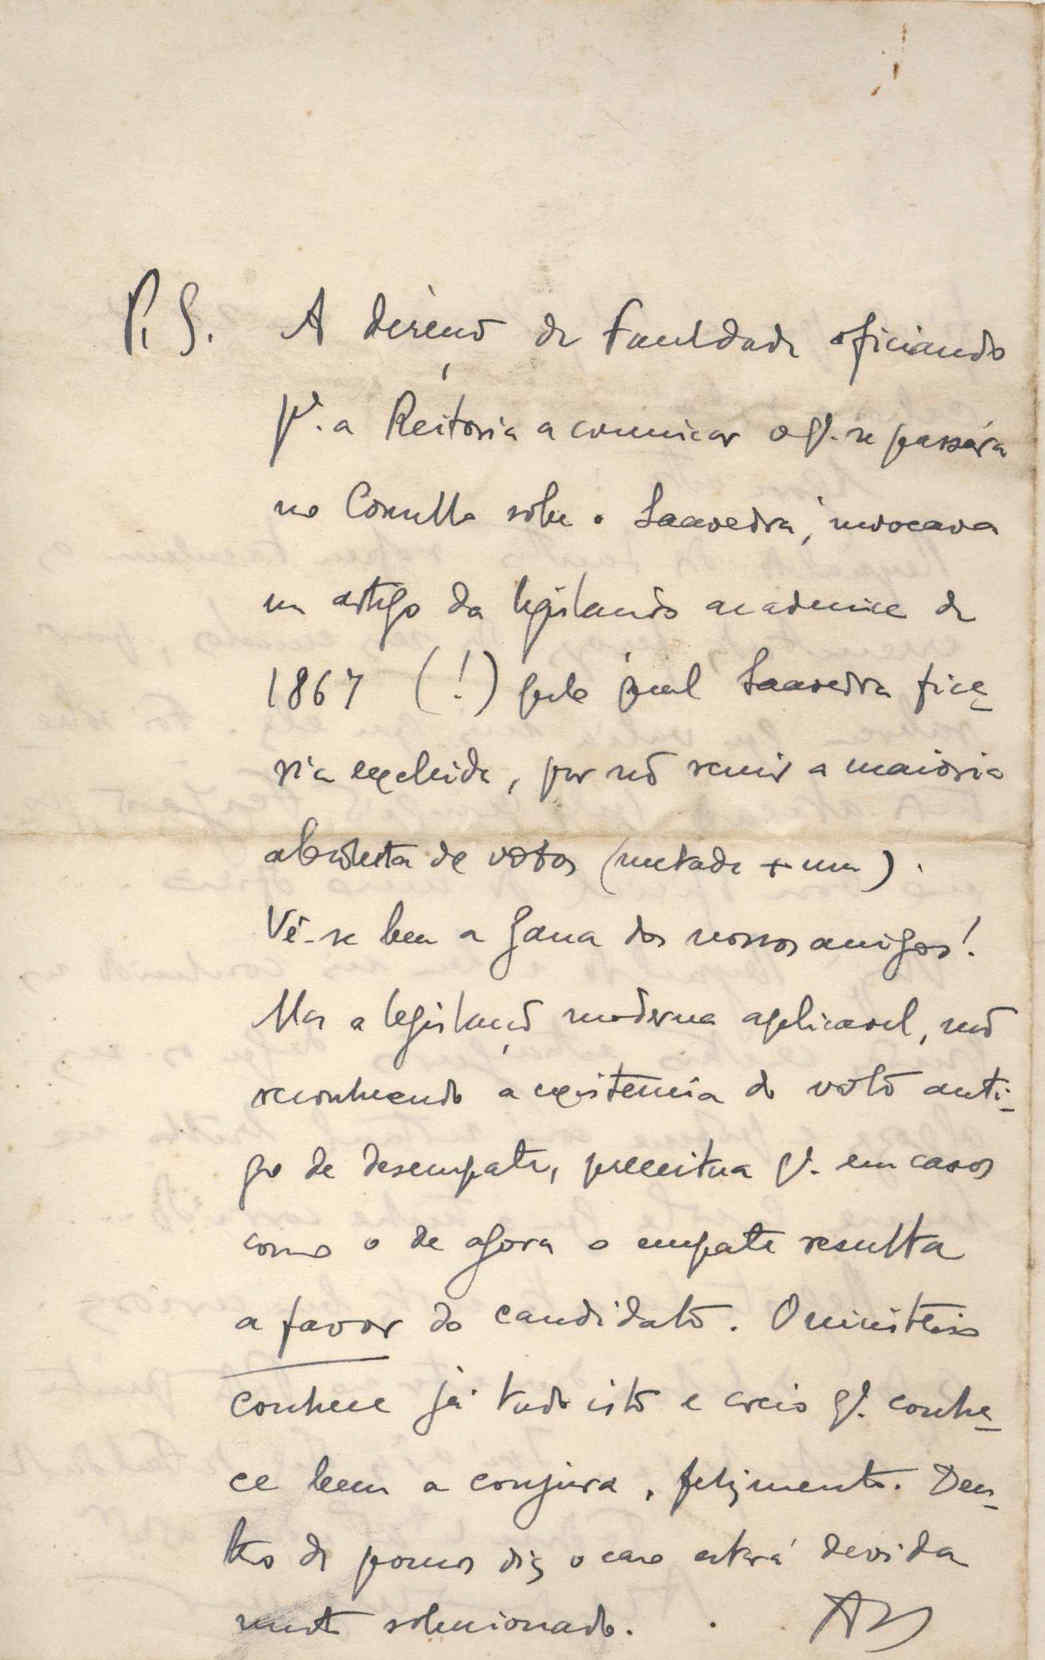 P. S. A direcção da Faculdade oficiando
pª. a Reitoria a comunicar o q. se passára
no Conselho sobre o Saavedra, invocava
um artigo da legislação academica de
1867 (!) pelo qual Saavedra fica-
ria excluido, por não reunir a maioria
absoluta de votos (metade + um).
Vê-se bem a gana dos nossos amigos!
Mas a legislação moderna aplicavel, não
reconhecendo a existencia do voto anti-
go de desempate, preceitua q. em casos
como o de agora o empate resulta
a favor do candidato. O ministerio
conhece já tudo isto e creio q. conhe-
ce bem a conjura, felizmente. Den-
tro de poucos dias o caso estará devida
mente solucionado.